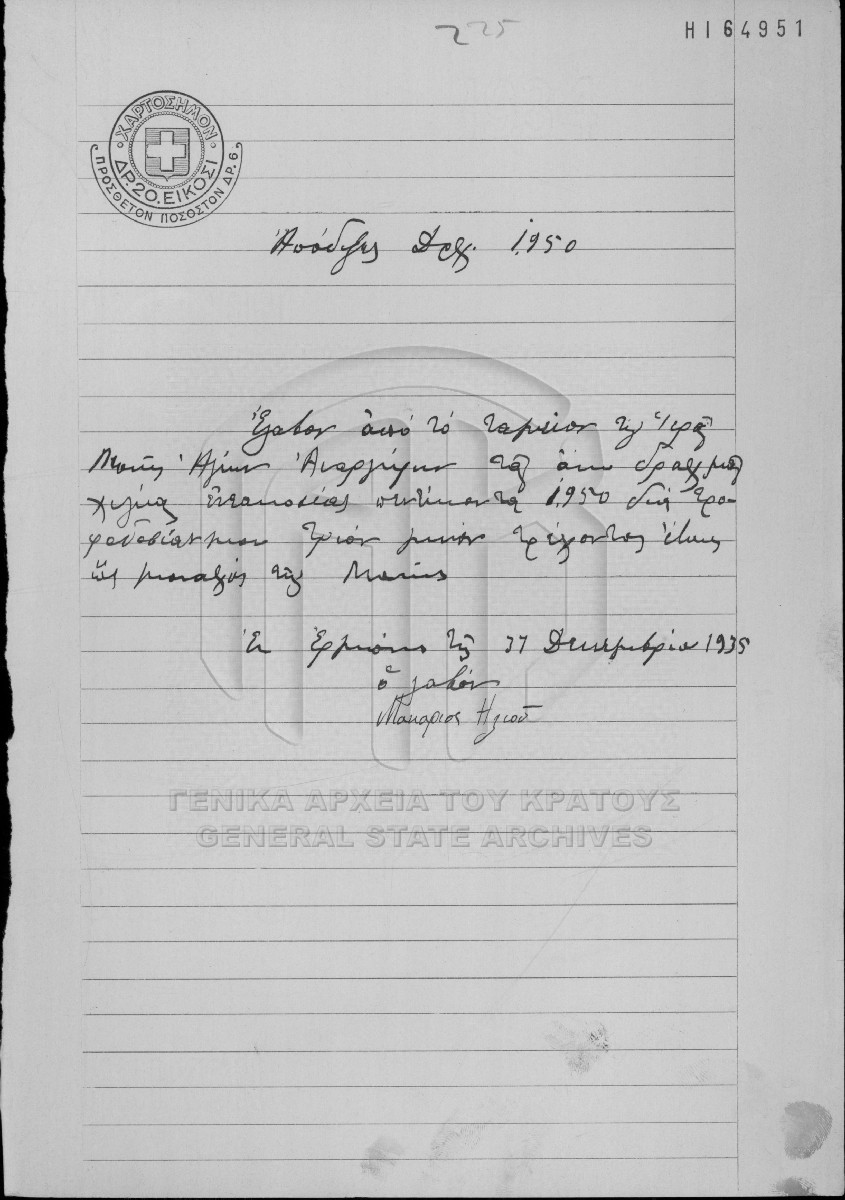 225
ΗΙ 64951
ΧΑΡΤΟΣΗΜΟΝ
ΔΡ. 20. ΕΙΚΟΣΙ
ΠΡΟΣΘΕΤΟΝ ΠΟΣΟΣΤΟΝ ΔΡ. 6.
Ἀπόδιξης Δρχ. 1,950
Ἔλαβον ἀπό τό ταμεῖον τῆς Ἱερᾶς
Μονῆς Ἁγίων Ἀναργύρων τάς ἄνω δραχμάς
χιλίας πεντήκοντα 1,950 διά τρο-
φοδοσίαν μου τριόν μηνόν τρέχοντος ἔτους
ὡς μοναχός τῆς Μονῆς
Ἐν Ἑρμιόνη τῆς 31 Δεκεμβρίου 1935
ὁ λαβόν
Μακαριος Ηλιού
ΓΕΝΙΚΑ ΑΡΧΕΙΑ ΤΟΥ ΚΡΑΤΟΥΣ
GENERAL STATE ARCHIVES